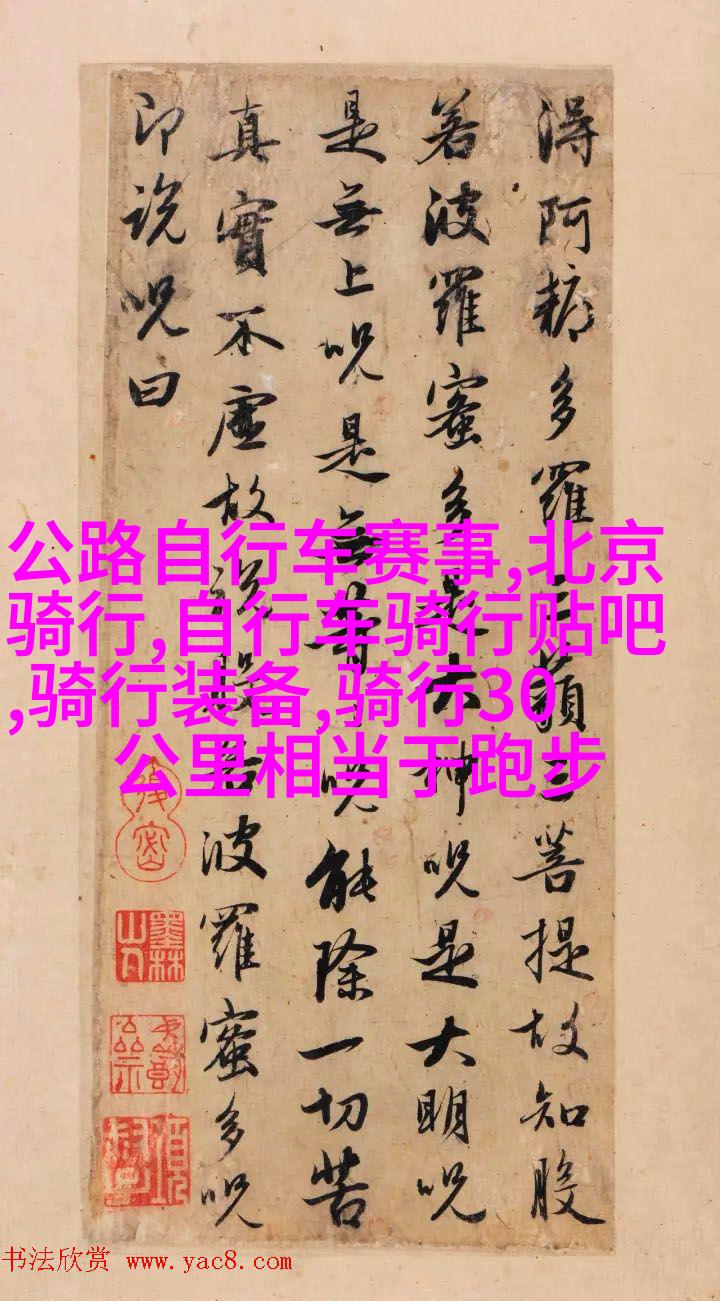 得阿耨多羅三藐三菩提故知般
若波羅蜜多是大神呪是大明呪
是無上呪是無等等呪能除一切苦
真實不虛故說般若波羅蜜多呪
即說呪曰
公路自行车赛事,北京
骑行,自行车骑行贴吧
,骑行装备,骑行30
公里相当于跑步
墨林山人
书法欣赏 www.yac8.com